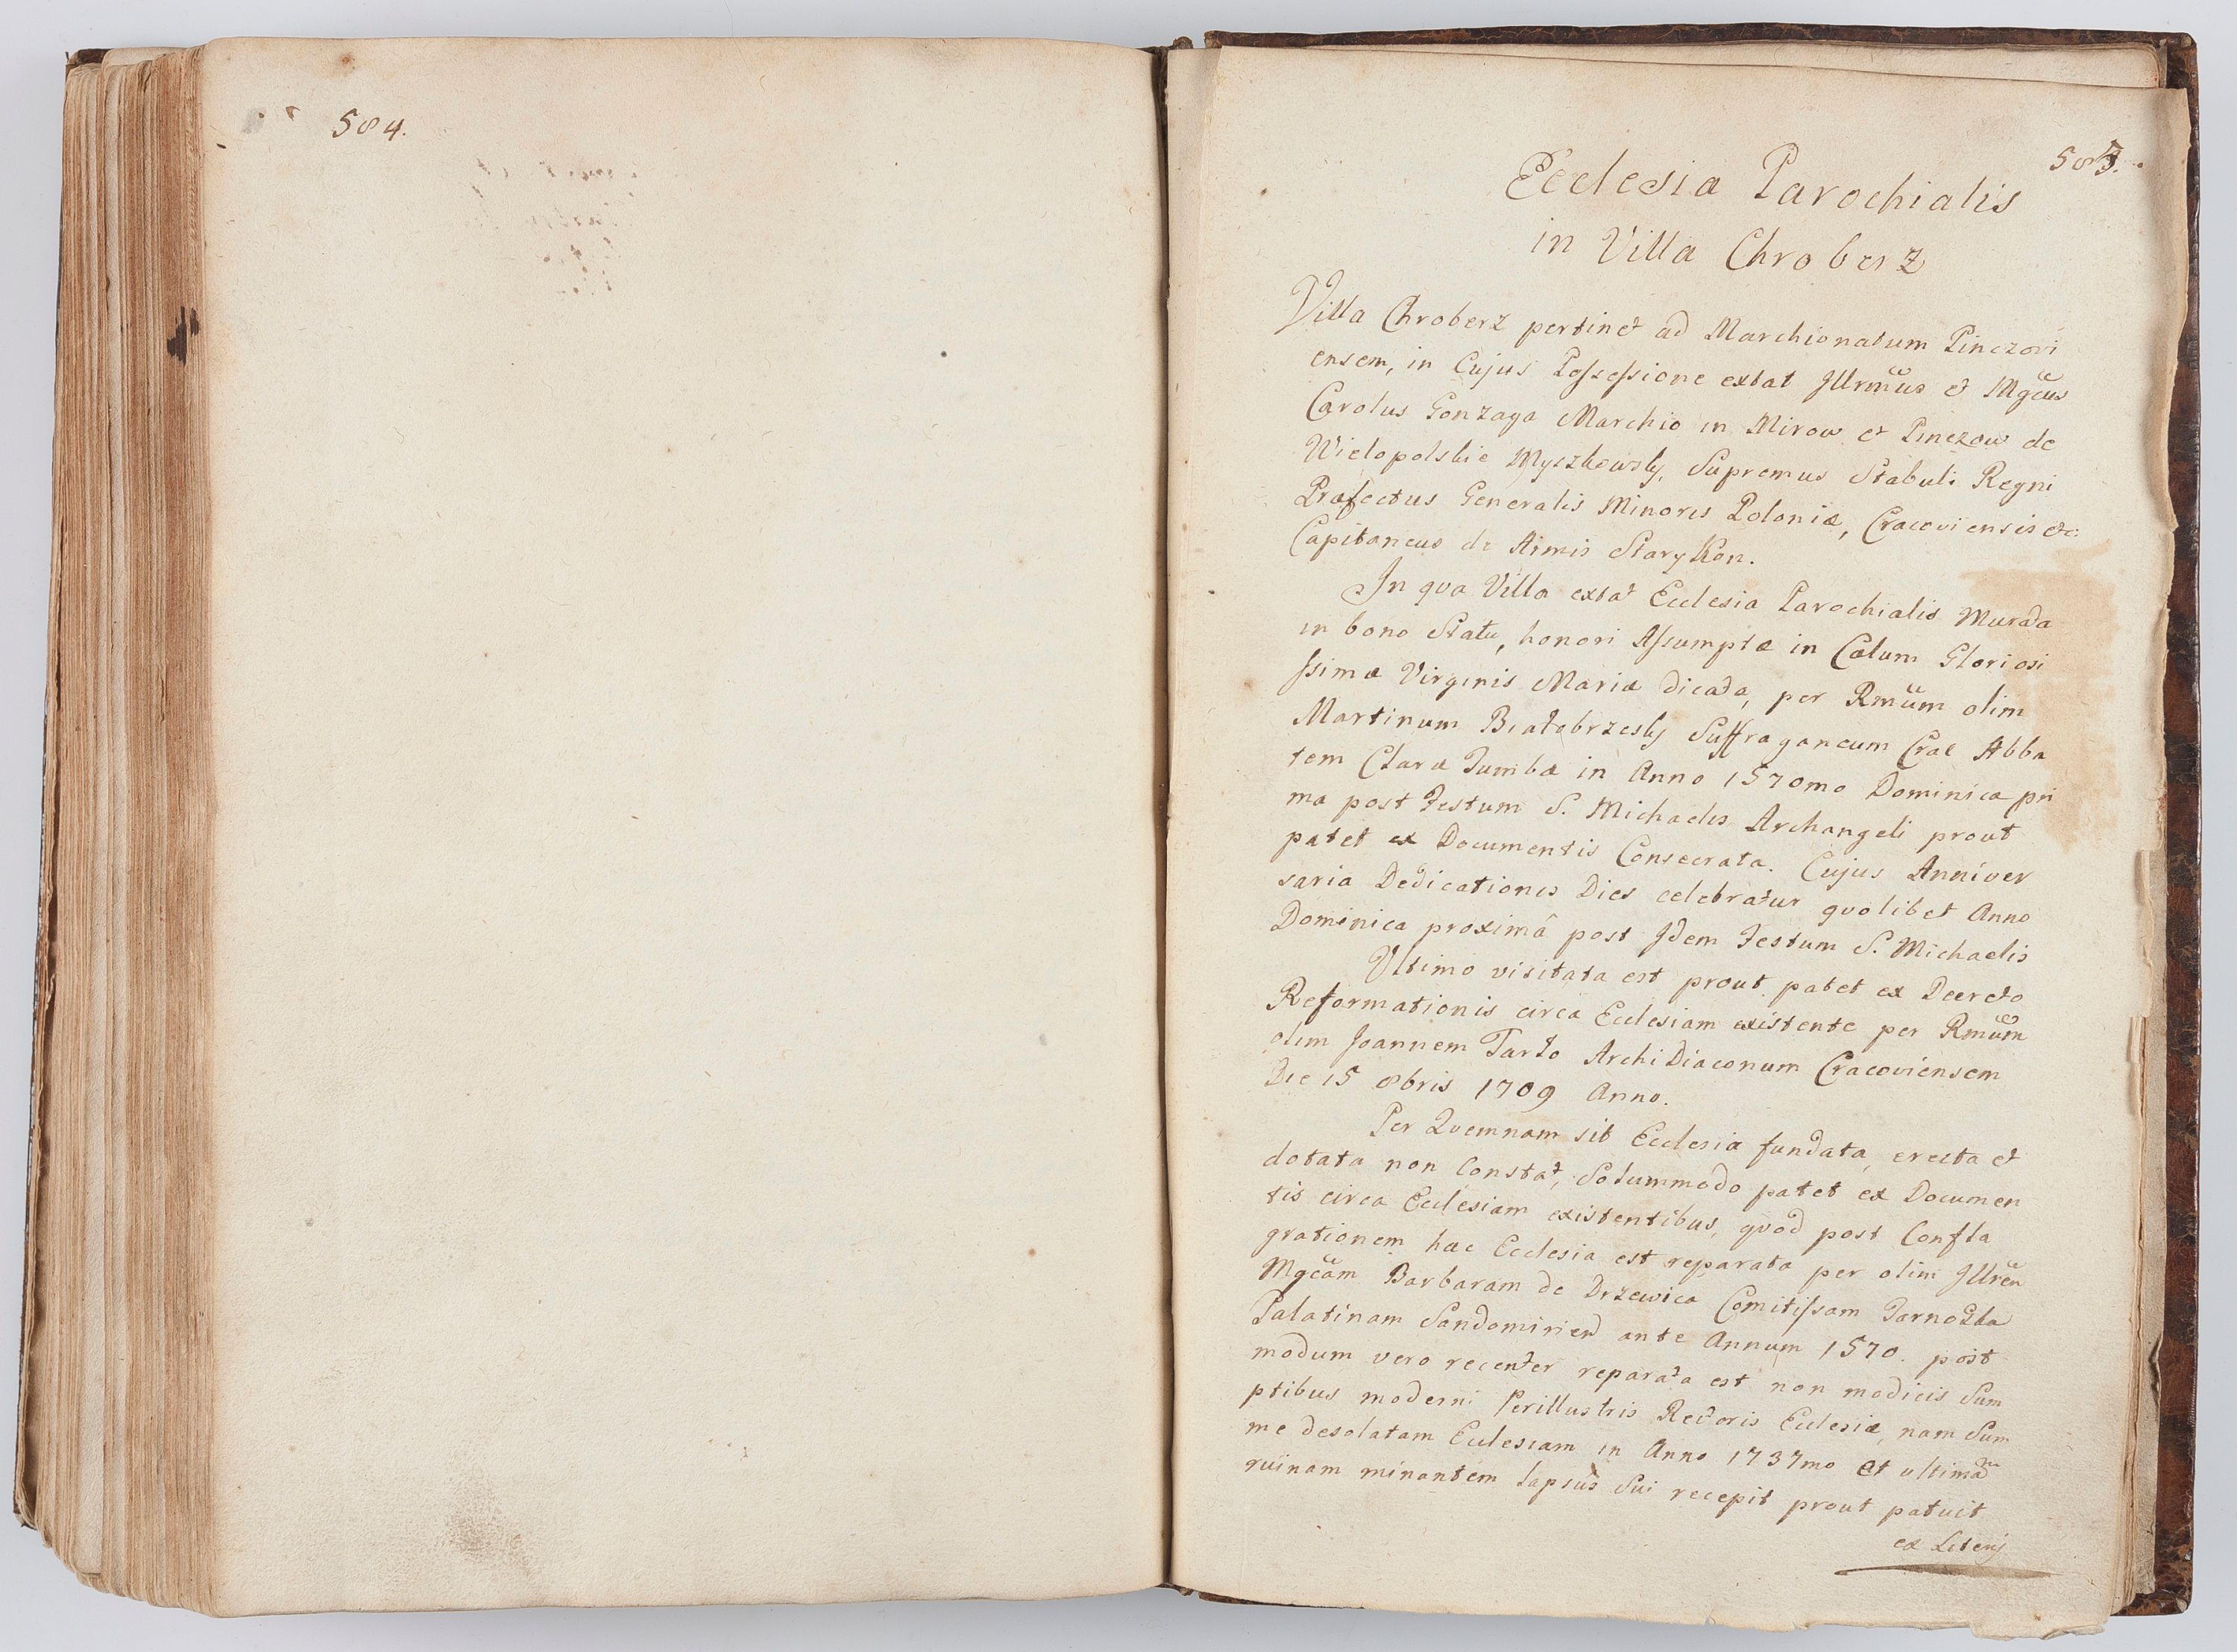 584.
585.
Ecclesia Parochialis
in Villa Chroberz
Villa Chroberz pertinet ad Marchionatum Pinczovi
ensem, in Cujus Possessione extat Illrmus et Mgcus
Carolus Gonzaga Marchio in Mirow et Pinczow de
Wielopolskie Myszkowsky, Supremus Stabuli Regni
Præfectus Generalis Minoris Poloniæ, Cracoviensis etc:
Capitaneus de Armis Stary Kon.
In qva Villa extat Ecclesia Parochialis Murata
in bono Statu, honori Assumptæ in Cælum Gloriosi
ssimæ Virginis Mariæ dicata, per Rmum olim
Martinum Białobrzesky Suffraganeum Crac Abba
tem Claræ Tumbæ in Anno 1570mo Dominica pri
ma post Festum S. Michaelis Archangeli prout
patet ex Documentis Consecrata. Cujus Anniver
saria Dedicationis Dies celebratur qvolibet Anno
Dominica proximâ post Idem Festum S. Michaelis
Ultimo visitata est prout patet ex Decreto
Reformationis circa Ecclesiam existente per Rmum
olim Joannem Tarło ArchiDiaconum Cracoviensem
Die 15 8bris 1709 Anno.
Per Qvemnam sit Ecclesia fundata, erecta et
dotata non Constat, Solummodo patet ex Documen
tis circa Ecclesiam existentibus, qvod post Confla
grationem hæc Ecclesia est reparata per olim Illren
Mgcam Barbaram de Drzewica Comitissam Tarnoska
Palatinam Sandomirien ante Annum 1570. post
modum vero recenter reparata est non modicis Sum
ptibus moderni Perillustris Rectoris Ecclesiæ, nam Sum
me desolatam Ecclesiam in Anno 1737mo et ultimam
ruinam minantem lapsus Sui recepit prout patuit
ex Literis